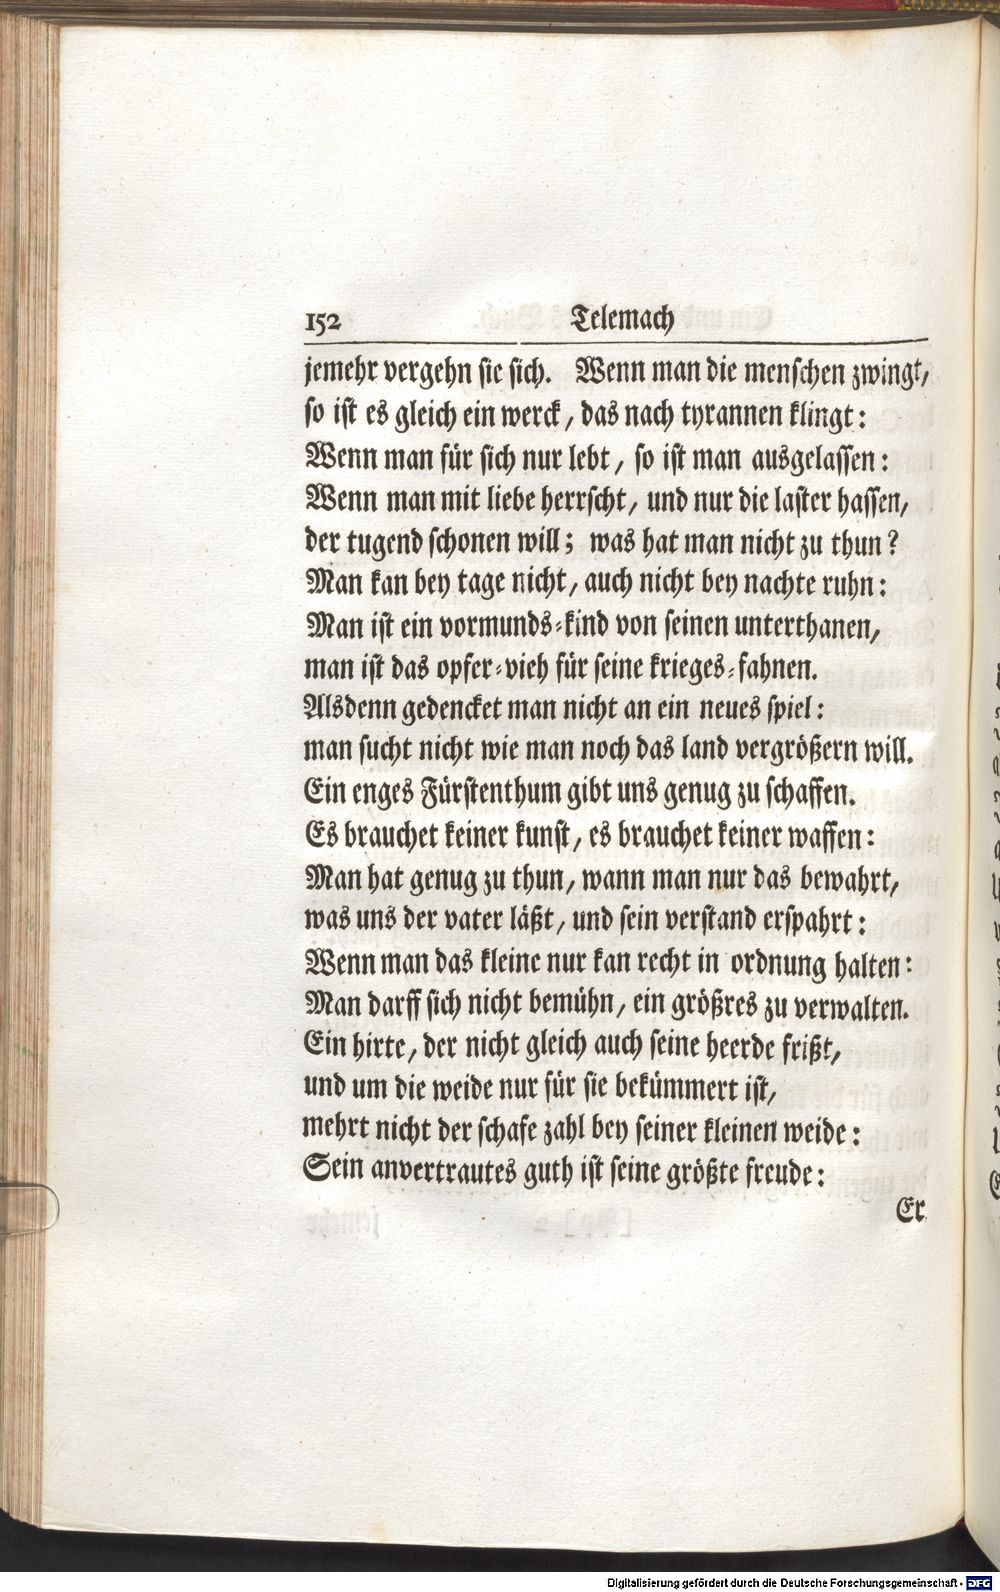 152 Telemach
jemehr vergehn sie sich. Wenn man die menschen zwingt,
so ist es gleich ein werck, das nach tyrannen klingt:
Wenn man für sich nur lebt, so ist man ausgelassen:
Wenn man mit liebe herrscht, und nur die laster hassen,
der tugend schonen will; was hat man nicht zu thun?
Man kan bey tage nicht, auch nicht bey nachte ruhn:
Man ist ein vormunds-kind von seinen unterthanen,
man ist das opfer-vieh für seine krieges-fahnen.
Alsdenn gedencket man nicht an ein neues spiel:
man sucht nicht wie man noch das land vergrößern will.
Ein enges Fürstenthum gibt uns genug zu schaffen.
Es brauchet keiner kunst, es brauchet keiner waffen:
Man hat genug zu thun, wann man nur das bewahrt,
was uns der vater läßt, und sein verstand erspahrt:
Wenn man das kleine nur kan recht in ordnung halten:
Man darff sich nicht bemühn, ein größres zu verwalten.
Ein hirte, der nicht gleich auch seine heerde frißt,
und um die weide nur für sie bekümmert ist,
mehrt nicht der schafe zahl bey seiner kleinen weide:
Sein anvertrautes guth ist seine größte freude:
Er
Digitalisierung gefördert durch die Deutsche Forschungsgemeinschaft - DFG